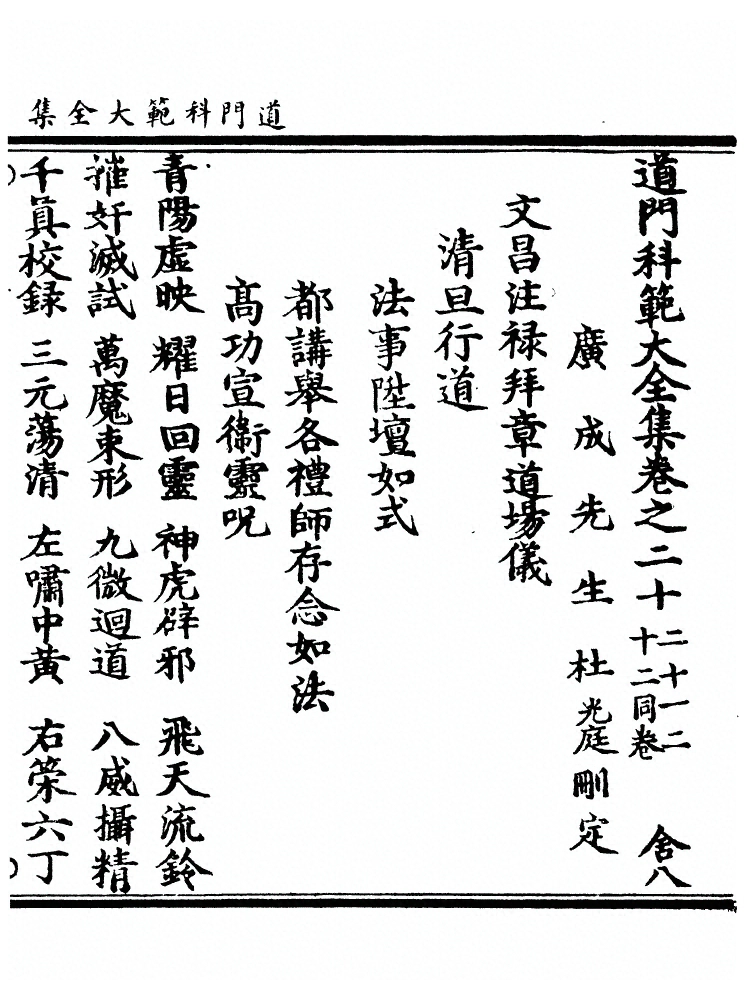 道門科範大全集
道門科範大全集卷之二十 二十一二十二同卷 舍八
廣成先生杜光庭刪定
文昌注禄拜章道場儀
清旦行道
法事陞壇如式
都講舉各禮師存念如法
髙功宣衛靈呪
青陽虛映 耀日回靈 神虎辟邪 飛天流鈴
摧奸滅試 萬魔束形 九微迴道 八威攝精
千眞校録 三元蕩清 左嘯中黄 右榮六丁